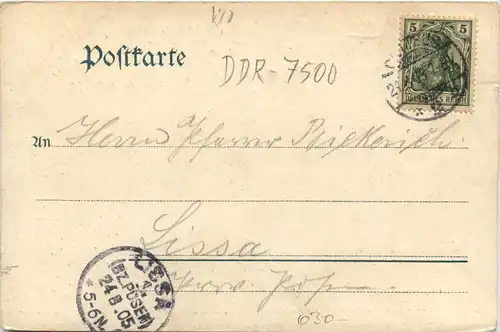 Postkarte
DDR-7500
5
DEUTSCHES REICH
An Herrn Pfarrer Bickerich
Lissa
Prov. Posen
LISSA
(BZ. POSEN)
24.8.05
*5-6N
630-